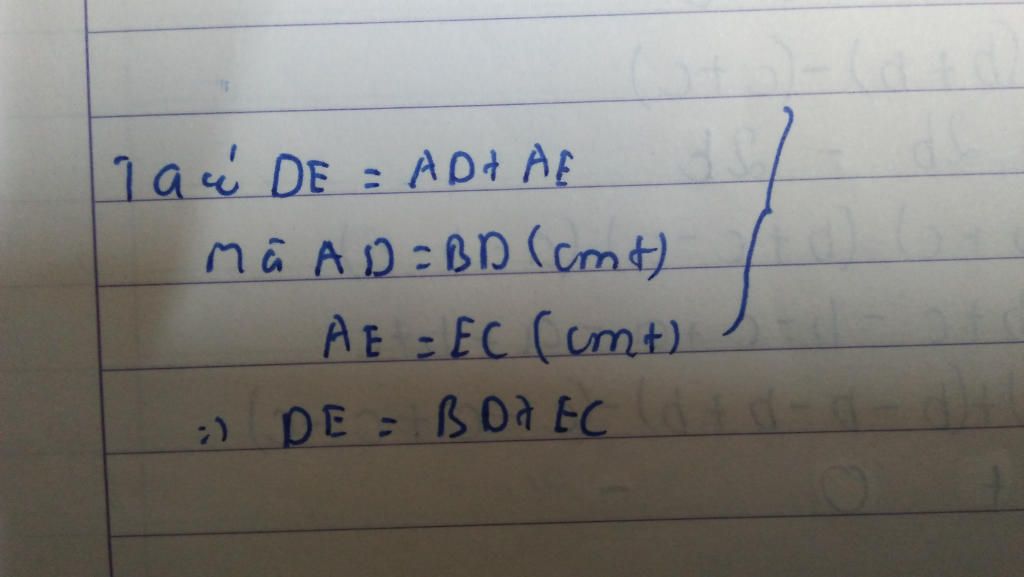 Ta có DE = AD + AE
mà AD = BD (cmt)
AE = EC (cmt)
=> DE = BD + EC